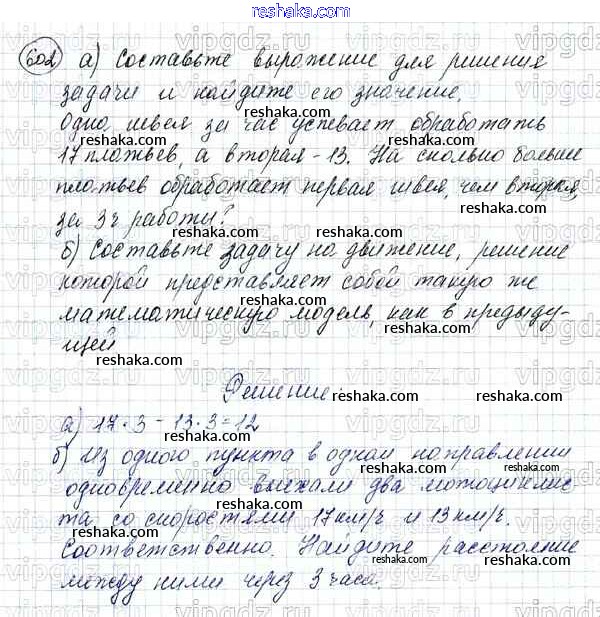 reshaka.com
602 а) Составьте выражение для решения
reshaka.com
задачи и найдите его значение.
reshaka.com
Одна швея за час успевает обработать
17 платьев, а вторая - 13. На сколько больше
reshaka.com
платьев обработает первая швея, чем вторая,
за 3ч работы?
reshaka.com
б) Составьте задачу на движение, решение
reshaka.com
которой представляет собой такую же
reshaka.com
математическую модель, как в предыду-
reshaka.com
щей
reshaka.com
Решение.
reshaka.com
а) 17·3 - 13·3=12
reshaka.com
б) Из одного пункта в одном направлении
reshaka.com
одновременно выехали два мотоциклис-
reshaka.com
та со скоростями 17км/ч и 13км/ч.
reshaka.com
Соответственно. Найдите расстояние
reshaka.com
между ними через 3 часа.
reshaka.com